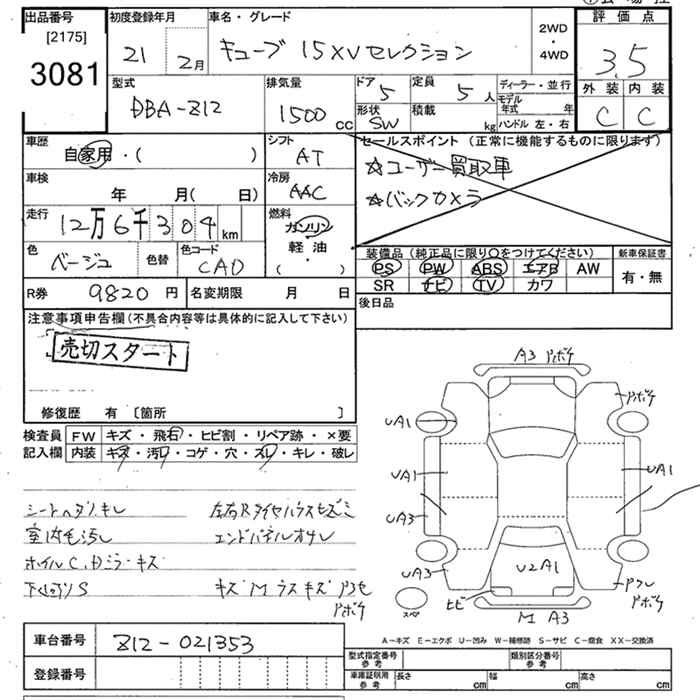 出品番号
[2175]
3081
初度登録年月
21 2月
車名・グレード
キューブ 15XVセレクション
2WD
・
4WD
評価点
3.5
外装 内装
C C
型式
DBA-Z12
排気量
1500 CC
ドア
5
定員
5人
形状
SW
積載
kg
ディーラー・並行
モデル年式 年
ハンドル 左・右
車歴
自家用・( )
シフト
AT
車検
年 月( 日)
冷房
AAC
走行
12万6千304km
燃料
ガソリン
軽油
( ・ )
色
ベージュ
色替
色コード
CAD
R券 9820円
名変期限 月 日
セールスポイント (正常に機能するものに限ります)
☆ユーザー買取車
☆バックカメラ
装備品 (純正品に限り○をつけてください)
PS PW ABS エアB AW
SR ナビ TV カワ
新車保証書
有・無
後日品
注意事項申告欄(不具合内容等は具体的に記入して下さい)
売切スタート
修復歴 有 〔箇所 〕
検査員
記入欄
FW キズ・飛石・ヒビ割・リペア跡・×要
内装 キズ・汚レ・コゲ・穴・スレ・キレ・破レ
シートヘタリ、キレ
室内毛汚レ
ホイルC、Dミラーキズ
下回りS
左右Rタイヤハウスヒズミ
エンドパネルオサレ
キズM ラスキズ
A3
UA1
UA1
UA3
UA3
UA1
U2A1
ヒビ
M A3
スペ
A-キズ E-エクボ U-凹み W-補修跡 S-サビ C-腐食 XX-交換済
車台番号
Z12-021353
登録番号
型式指定番号
参考
類別区分番号
参考
車庫証明用
参考
長さ cm
幅 cm
高さ cm